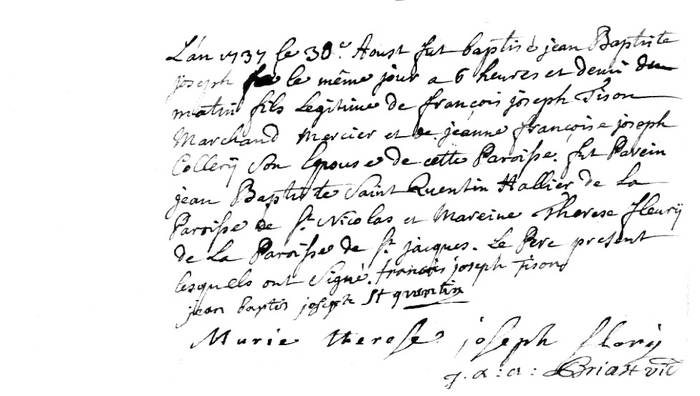 L'an 1737 le 30e Aoust fut baptisé jean Baptiste
joseph né le même jour a 6 heures et demi du
matin fils legitime de françois joseph Tison
Marchand Mercier et de jeanne françoise joseph
Collery Son Epouse de cette Paroisse. fut Parein
jean Baptiste Saint Quentin Hallier de La
Paroisse de St Nicolas et Mareine Therese fleurÿ
de La Paroisse de St jacques. Le Pere present
lesquels ont Signé. francois joseph Tison
jean baptis joseph St quentin
Marie therese joseph flory
j. a: Briast